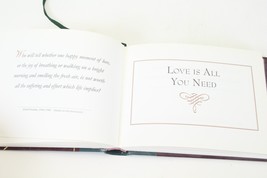 Who will tell whether one happy moment of love,
or the joy of breathing or walking on a bright
morning and smelling the fresh air, is not worth
all the suffering and effort which life implies?
LOVE IS ALL
YOU NEED